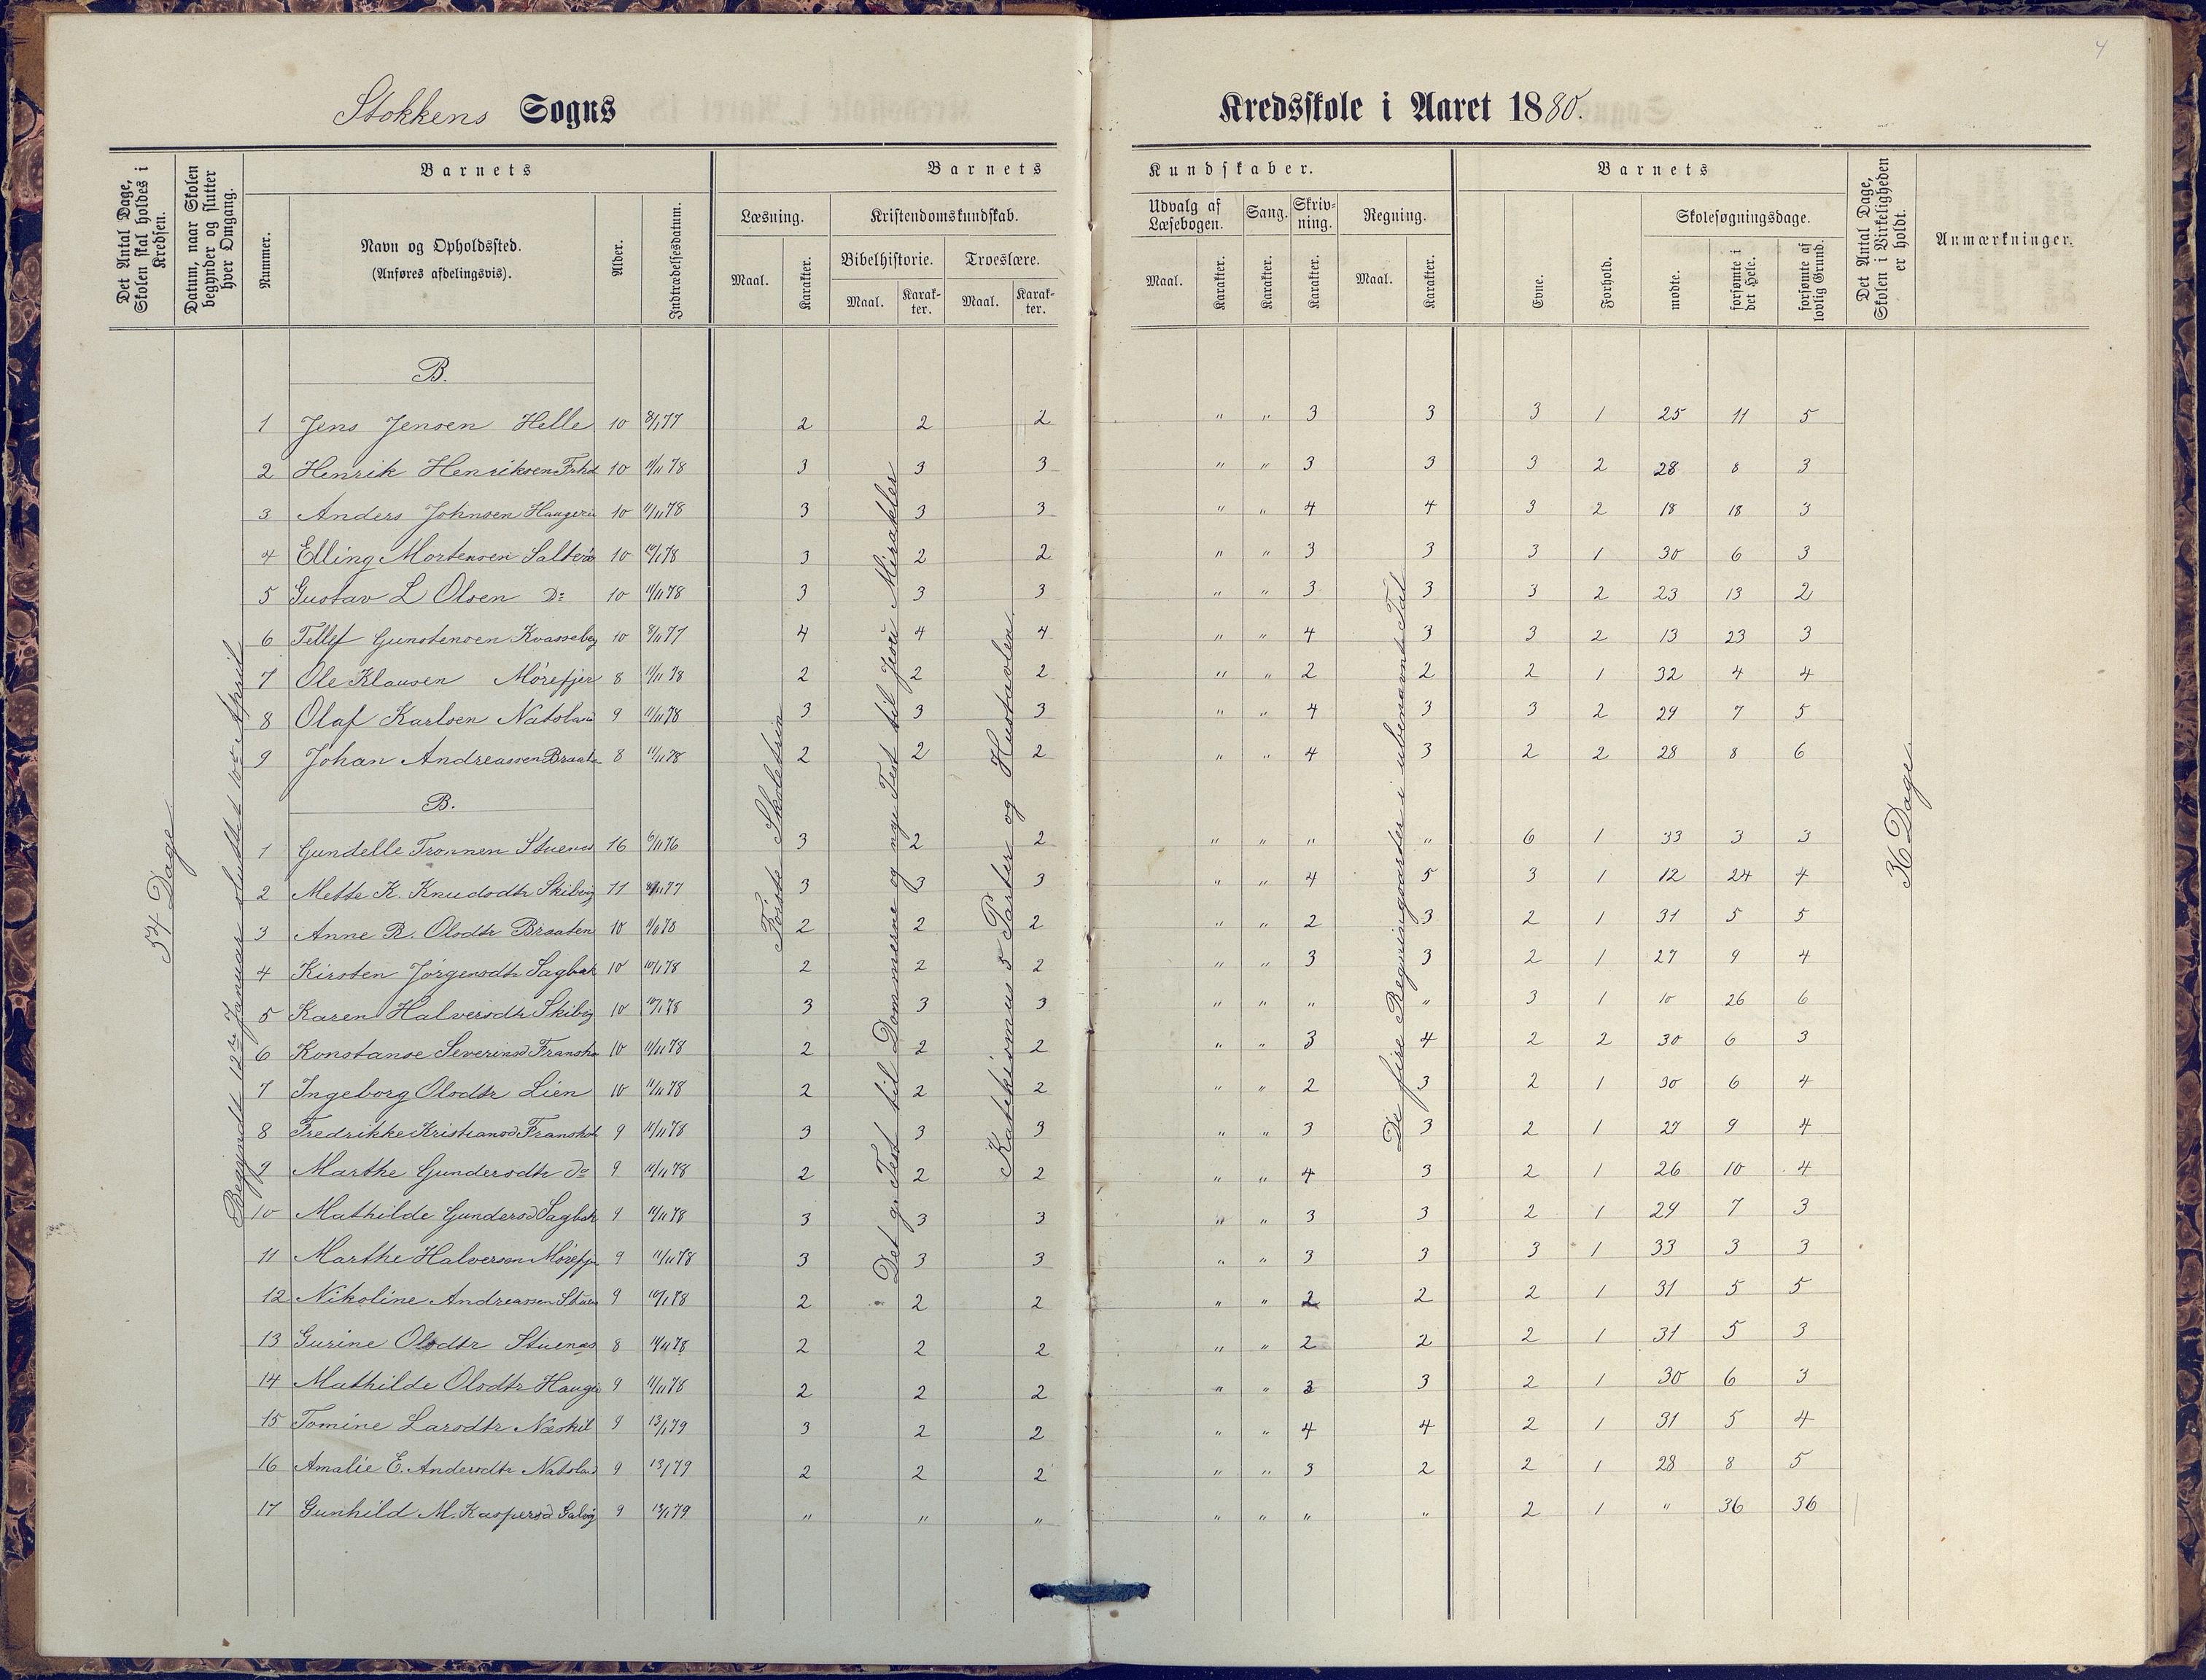 4
Stokkens Sogns Kredsskole i Aaret 1880.
Det Antal Dage, Skolen skal holdes i Kredsen.
Datum, naar Skolen begynder og slutter hver Omgang.
Barnets
Nummer.
Navn og Opholdssted.
(Anføres afdelingsvis).
Alder.
Indtrædelsesdatum.
Barnets Kundskaber.
Læsning.
Maal. Karakter.
Kristendomskundskab.
Bibelhistorie. Troeslære.
Maal. Karak-ter. Maal. Karak-ter.
Udvalg af Læsebogen.
Maal. Karakter.
Sang.
Karakter.
Skriv-ning.
Karakter.
Regning.
Maal. Karakter.
Barnets
Evne. Forhold.
Skolesøgningsdage.
mødte. forsømte i det Hele. forsømte af lovlig Grund.
Det Antal Dage, Skolen i Virkeligheden er holdt.
Anmærkninger.
54 Dage
Begyndt 12te Januar sluttet 10de April
Første Skoletrin
Det g. Test til Dommerne og nye Test til Jesu Mirakler
Katekismus 5 Parter og Hustavlen
De fire Regningsarter i ubenævnte Tal
36 Dage
B.
1 Jens Jensen Helle 10 8/1 77 2 2 2 " " 3 3 3 1 25 11 5
2 Henrik Henriksen 10 11/11 78 3 3 3 " " 3 3 3 2 28 8 3
3 Anders Johnsen 10 11/11 78 3 3 3 " " 4 4 3 2 18 18 3
4 Elling Mortensen Salterø 10 10/1 78 3 2 2 " " 3 3 3 1 30 6 3
5 Gustav L Olsen Do 10 11/11 78 3 3 3 " " 3 3 3 2 23 13 2
6 Tellef Gunstensen 10 8/11 77 4 4 4 " " 4 3 3 2 13 23 3
7 Ole Klausen Mørefjer 8 11/11 78 2 2 2 " " 2 2 2 1 32 4 4
8 Olaf Karlsen Natvland 9 11/11 78 3 3 3 " " 4 3 3 2 29 7 5
9 Johan Andreassen Braaten 8 11/11 78 2 2 2 " " 4 3 2 2 28 8 6
B.
1 Gundelle Tronnen Stuenes 16 6/11 76 3 2 2 " " " " 6 1 33 3 3
2 Mette K. Knudsdtr Skibvig 11 8/11 77 3 3 3 " " 4 5 3 1 12 24 4
3 Anne R. Olsdtr Braaten 10 11/11 78 2 2 2 " " 2 3 2 1 31 5 5
4 Kirsten Jørgensdtr Sagbak 10 10/1 78 2 2 2 " " 3 3 2 1 27 9 4
5 Karen Halversdtr Skibvig 10 10/1 78 3 3 3 " " " " 3 1 10 26 6
6 Konstanse Severinsd 10 11/11 78 2 2 2 " " 3 4 2 2 30 6 3
7 Ingeborg Olsdtr Lien 10 11/11 78 2 2 2 " " 2 3 2 1 30 6 4
8 Fredrikke Kristiansd 9 11/11 78 3 3 3 " " 3 3 2 1 27 9 4
9 Marthe Gundersdtr Do 9 11/11 78 2 2 2 " " 4 3 2 1 26 10 4
10 Mathilde Gundersd Sagbak 9 11/11 78 3 3 3 " " 3 3 2 1 29 7 3
11 Marthe Halversen Mørefjer 9 11/11 78 3 3 3 " " 3 3 3 1 33 3 3
12 Nikoline Andreassen Stuenes 9 10/1 78 2 2 2 " " 2 2 2 1 31 5 5
13 Gurine Olsdtr Stuenes 8 11/11 78 2 2 2 " " 2 2 2 1 31 5 3
14 Mathilde Olsdtr 9 11/11 78 2 2 2 " " 3 3 2 1 30 6 3
15 Tomine Larsdtr Neskil 9 13/1 79 3 2 2 " " 4 4 2 1 31 5 4
16 Amalie E. Andersdtr Natvland 9 13/1 79 2 2 2 " " 3 2 2 1 28 8 5
17 Gunhild M. Kaspersd 9 13/1 79 " " " " " " " 2 1 " 36 36